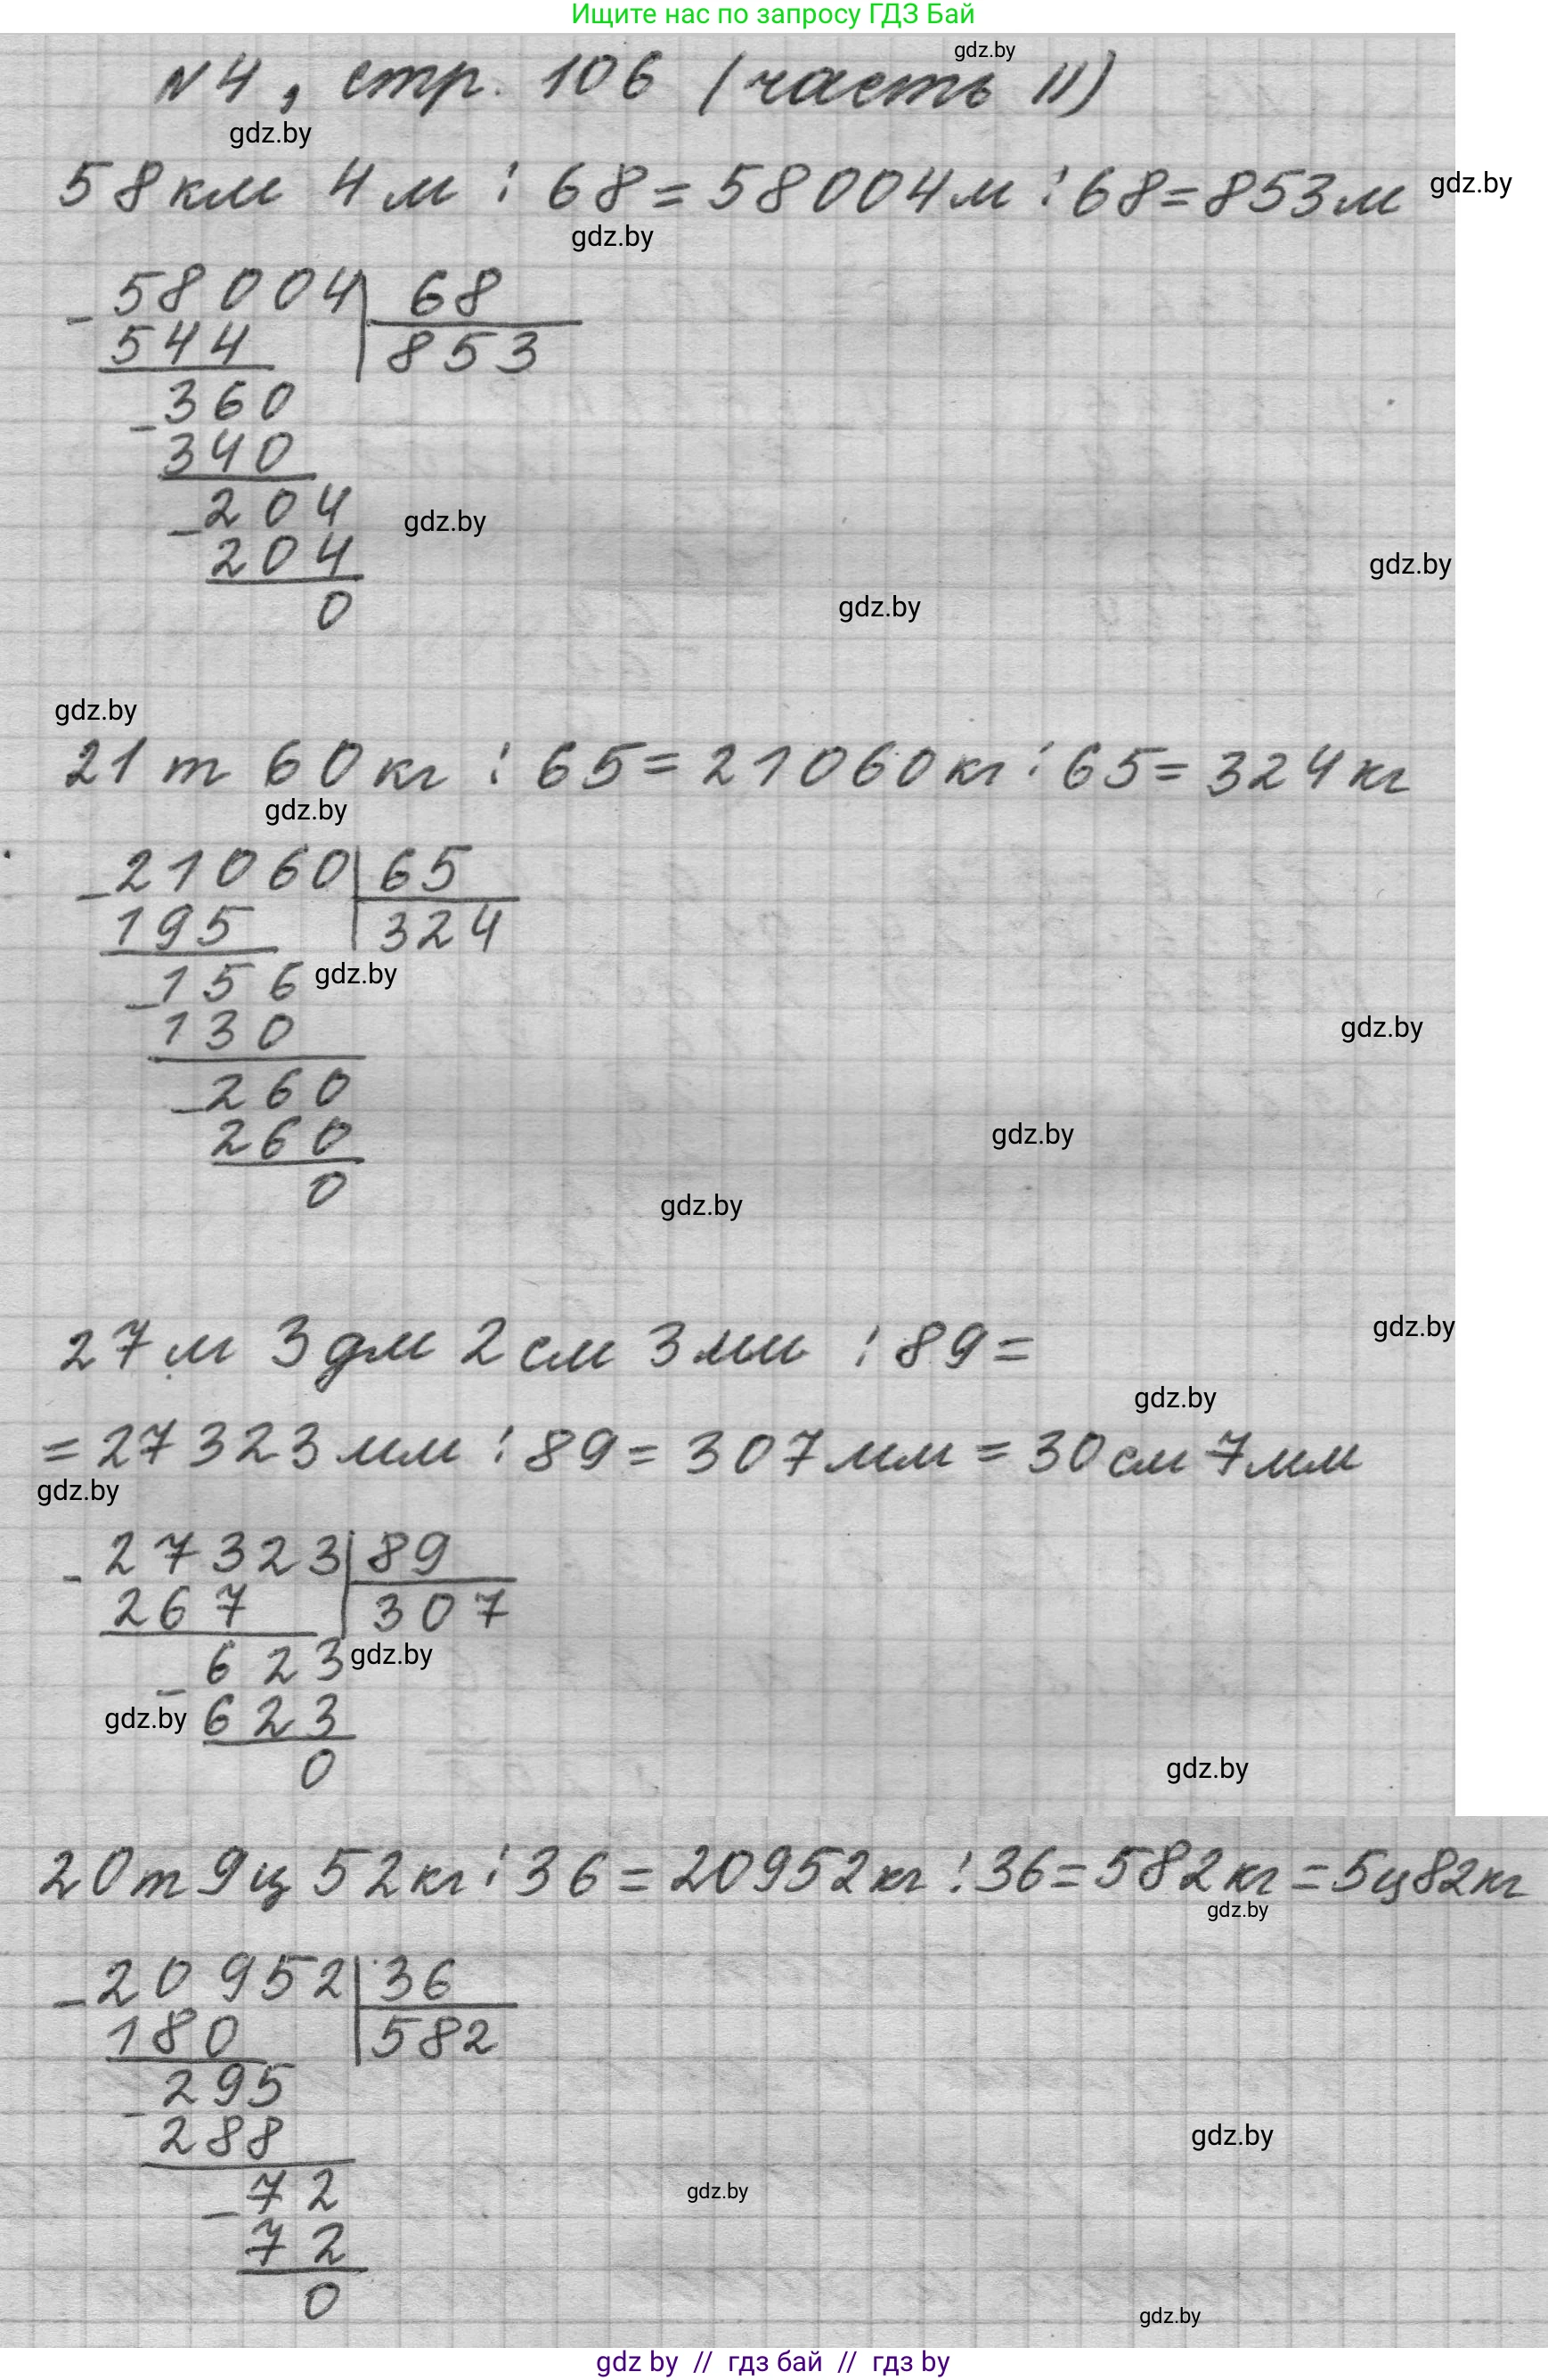 Ищите нас по запросу ГДЗ Бай
gdz.by
N4, стр. 106 (часть II)
gdz.by
58км 4м : 68 = 58004м : 68 = 853м gdz.by
gdz.by
- 58004 | 68
544 | 853
- 360
340
- 204 gdz.by
204
gdz.by
0 gdz.by
gdz.by
21т 60кг : 65 = 21060кг : 65 = 324кг
gdz.by
- 21060 | 65
195 | 324
- 156 gdz.by
130 gdz.by
- 260
260 gdz.by
0 gdz.by
27м 3дм 2см 3мм : 89 = gdz.by
gdz.by
= 27323мм : 89 = 307мм = 30см 7мм
gdz.by
- 27323 | 89
267 | 307
- 623 gdz.by
gdz.by 623
0 gdz.by
20т 9ц 52кг : 36 = 20952кг : 36 = 582кг = 5ц82кг
gdz.by
- 20952 | 36
180 | 582
- 295
288 gdz.by
- 72 gdz.by
72
0 gdz.by
gdz by // гдз бай // гдз by